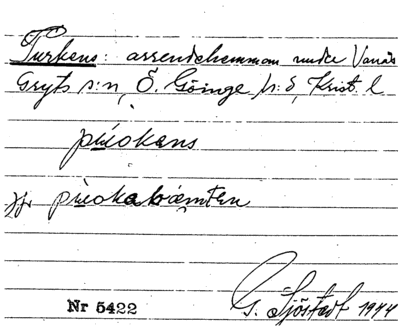 Turkens: arrendehemman under Vanås
Gryts s:n, Ö. Göinge h:d, Krist. l
jfr
Nr 5422 G. Sjöstedt 1944